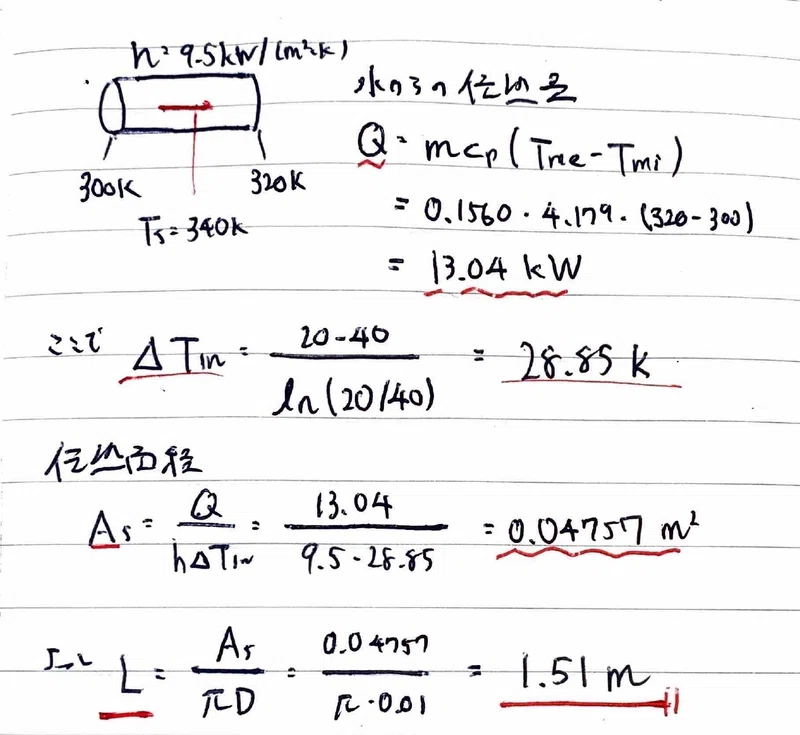 h = 9.5kW/(m²K)
300K
320K
Ts = 340K
水の3の伝熱量
Q = mcp(Tme - Tmi)
= 0.1560・4.179・(320-300)
= 13.04 kW
ここで ΔTln = 20-40 / ln(20/40) = 28.85 K
伝熱面積
As = Q / hΔTln = 13.04 / 9.5・28.85 = 0.04757 m²
よって L = As / πD = 0.04757 / π・0.01 = 1.51 m